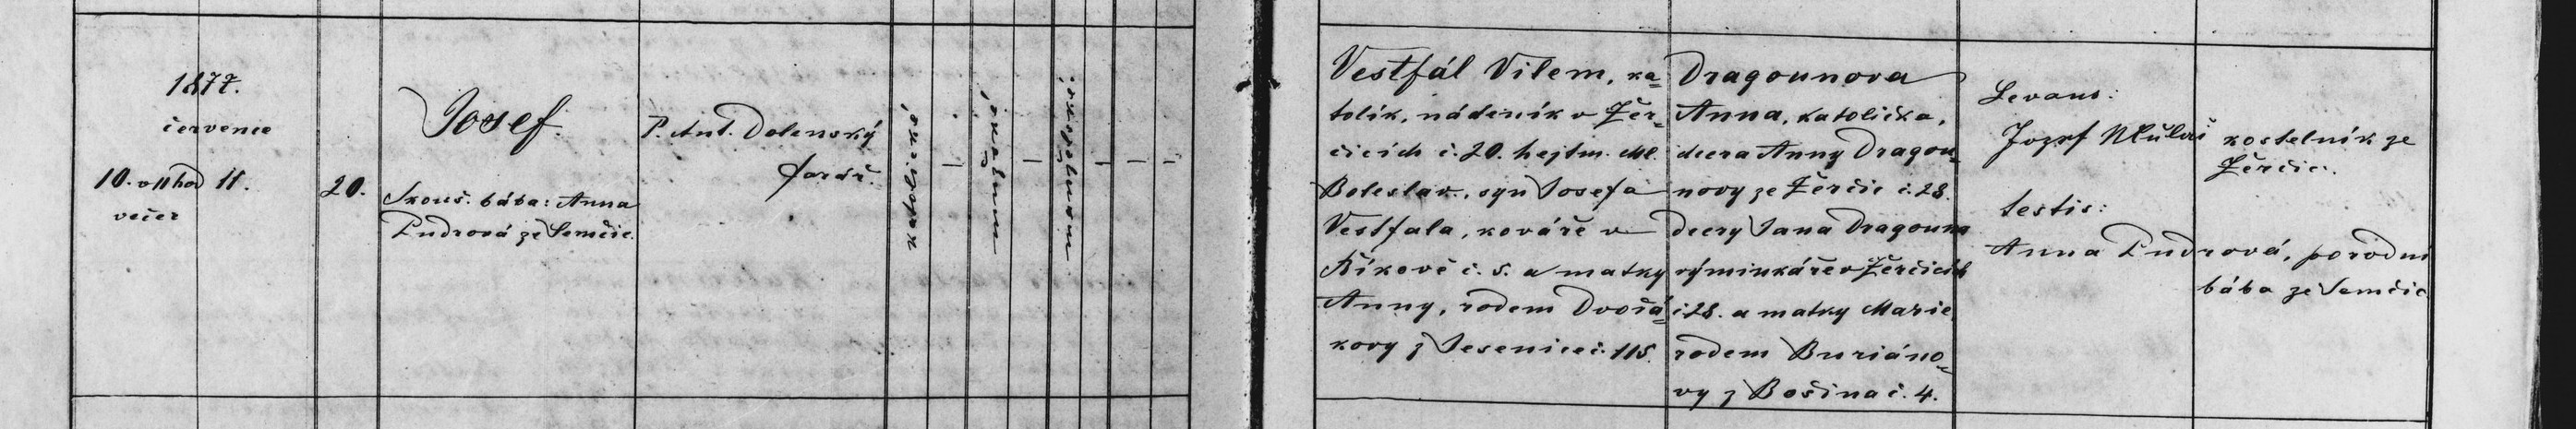 1877.
července
10. o 11 hod 11.
večer
20.
Josef.
Zkouš. bába: Anna
Pudrová ze Semčic.
P. Ant. Dolenský
farář.
katolické,
mužské,
manželské,
Vestfál Vilem, ka=
tolík, nádeník v Žer=
čicích č. 20. hejtm. Ml.
Boleslav., syn Josefa
Vestfala, kováře v
Říkově č. 5. a matky
Anny, rodem Dvořá=
kovy z Jesenice č. 115.
Dragounova
Anna, katolička,
dcera Anny Dragou=
novy ze Žerčic č. 28.
dcery Jana Dragouna
výminkáře v Žerčicích
č 28. a matky Marie,
rodem Buriáno=
vy z Bošína č. 4.
Levans:
Jozef kostelník ze
Žerčic.
testis:
Anna Pudrová, porodní
bába ze Semčic.